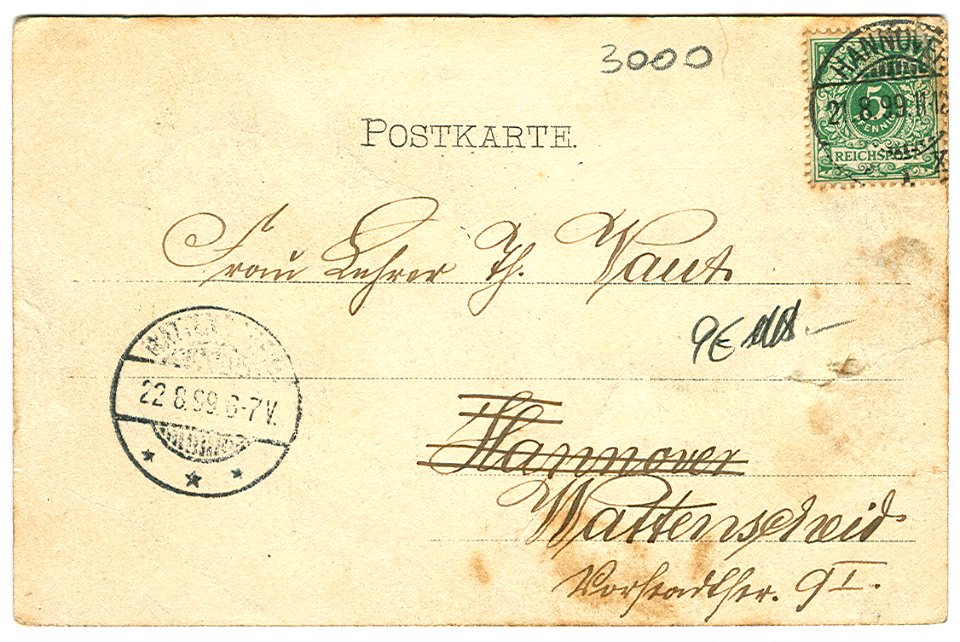 3000
HANNOVER
21.8.99.11-12
5
PFENNIG
REICHSPOST
POSTKARTE.
Frau Lehrer Th. Waut.
9E
22.8.99.6-7V.
Hannover
Wattenscheid.
Vorstadtstr. 9 I.